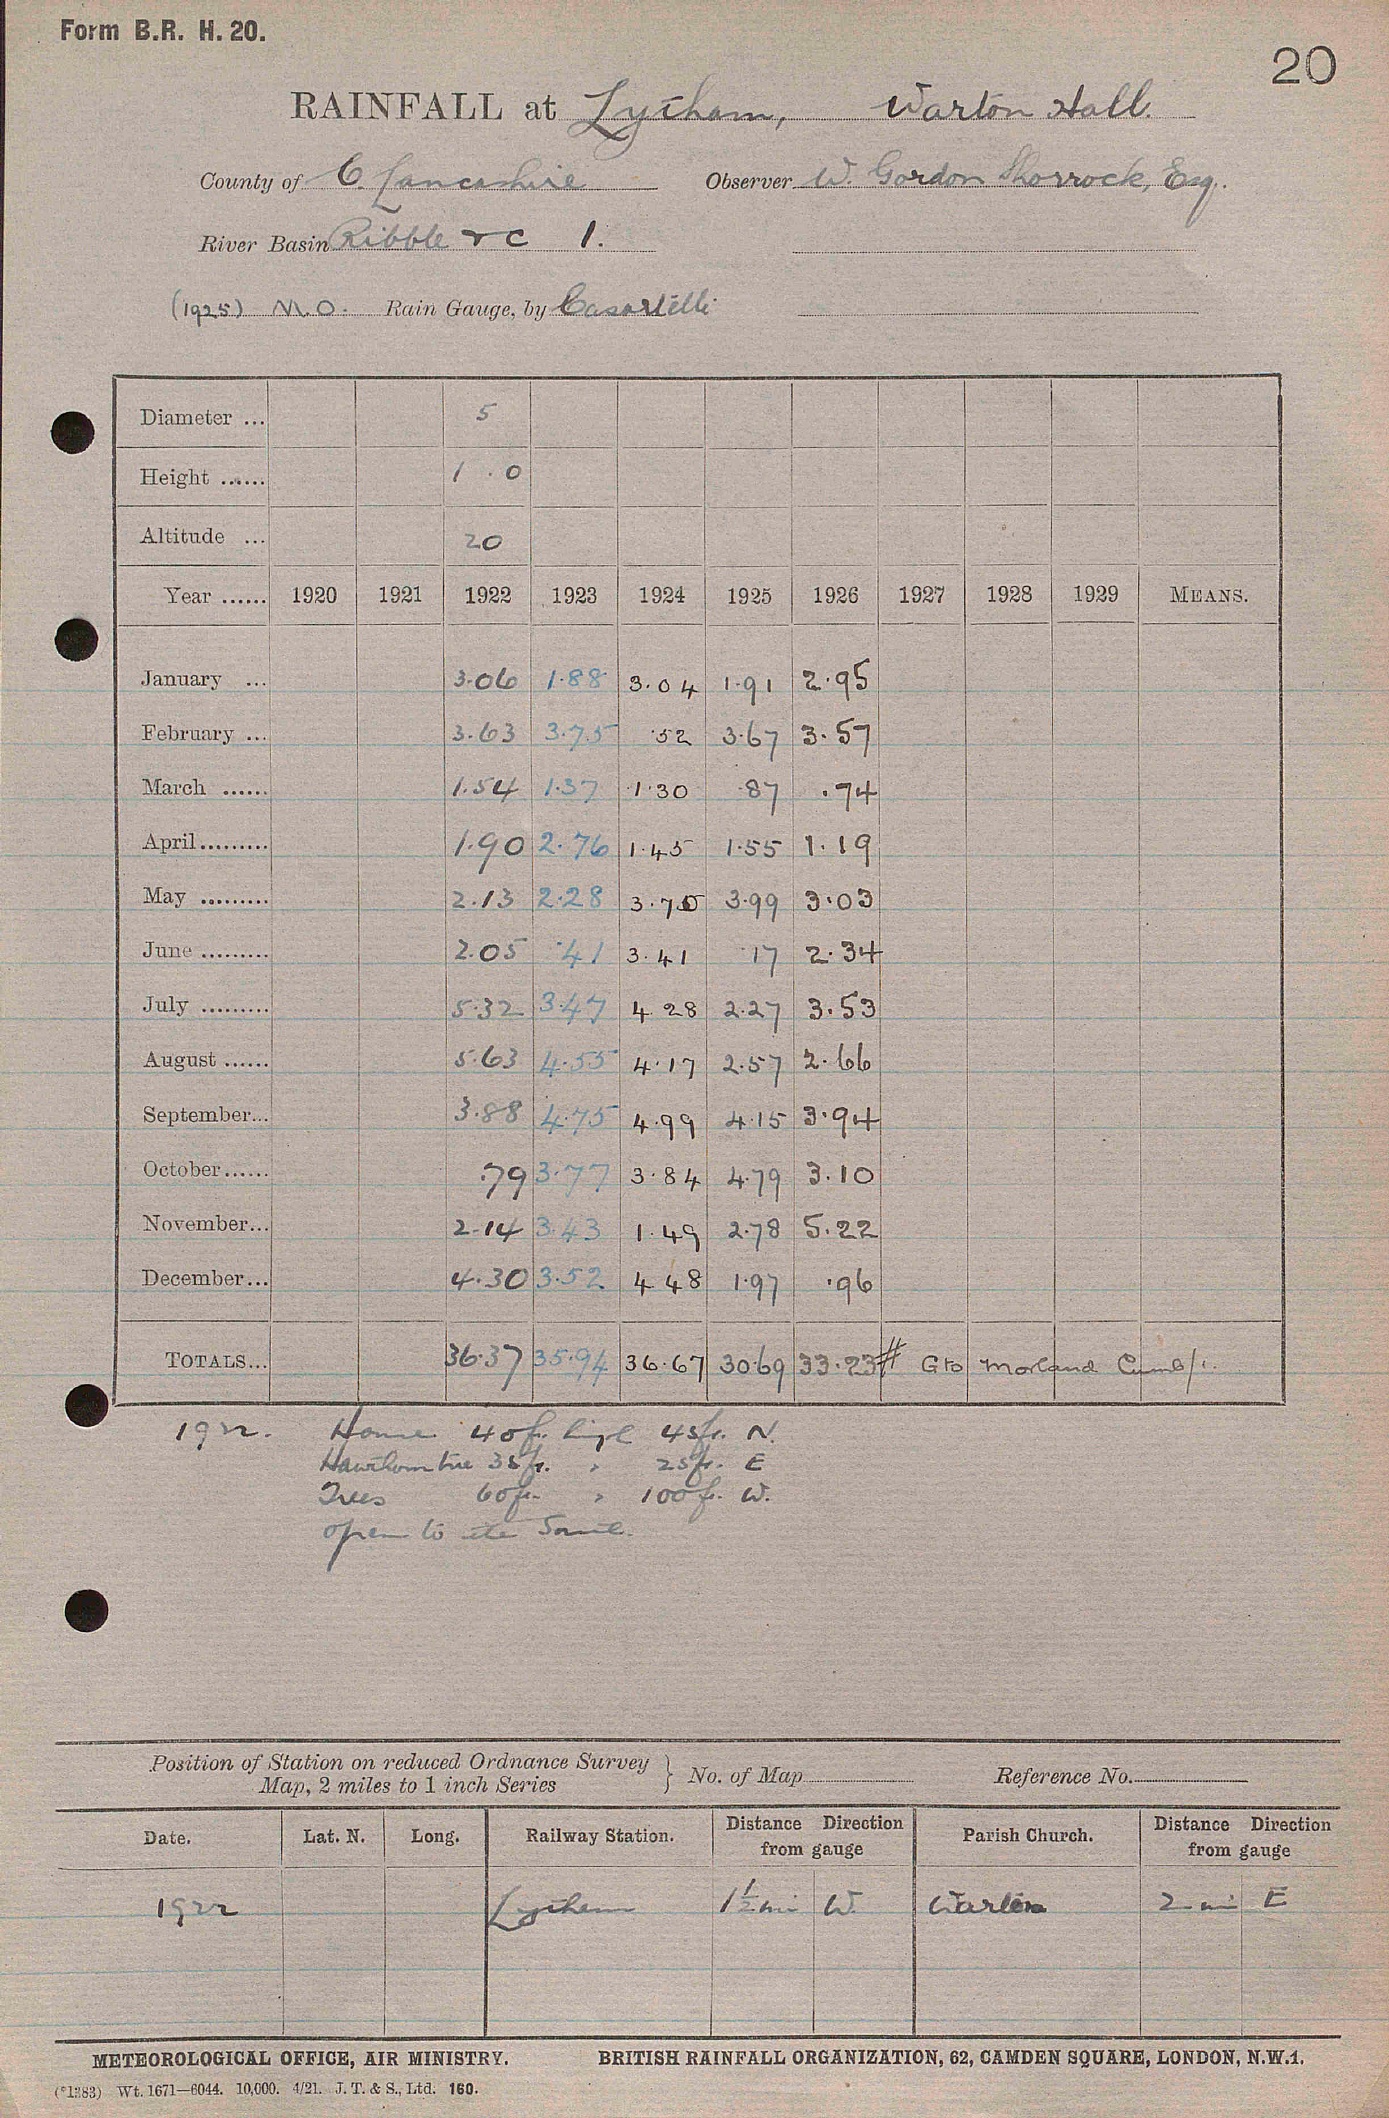 Form B.R. H. 20.
20
RAINFALL at Lytham, Warton Hall.
County of C. Lancashire Observer W. Gordon Shorrock, Esq.
River Basin Ribble & c 1.
(1925) M.O. Rain Gauge, by Casartelli
Diameter ... 5
Height ...... 1 . 0
Altitude ... 20
Year ...... 1920 1921 1922 1923 1924 1925 1926 1927 1928 1929 MEANS.
January ... 3.06 1.88 3.04 1.91 2.95
February ... 3.63 3.75 .52 3.67 3.57
March ...... 1.54 1.37 1.30 .87 .74
April ......... 1.90 2.76 1.45 1.55 1.19
May ......... 2.13 2.28 3.70 3.99 3.03
June ......... 2.05 .41 3.41 .17 2.34
July ......... 5.32 3.47 4 28 2.27 3.53
August ...... 5.63 4.55 4.17 2.57 2.66
September... 3.88 4.75 4.99 4.15 3.94
October...... .79 3.77 3.84 4.79 3.10
November... 2.14 3.43 1.49 2.78 5.22
December... 4.30 3.52 4 48 1.97 .96
TOTALS... 36.37 35.94 36.67 30.69 33.23 # G to Morland Cumb/.
1922. House 40ft. high 45ft. N.
Hawthorn tree 35ft. " 25ft. E
Trees 60ft. " 100ft. W.
open to the South.
Position of Station on reduced Ordnance Survey
Map, 2 miles to 1 inch Series } No. of Map Reference No.
Date. Lat. N. Long. Railway Station. Distance Direction from gauge Parish Church. Distance Direction from gauge
1922 Lytham 1½ mi W. Warton 2 mi E
METEOROLOGICAL OFFICE, AIR MINISTRY. BRITISH RAINFALL ORGANIZATION, 62, CAMDEN SQUARE, LONDON, N.W.1.
(*1383) Wt. 1671—6044. 10,000. 4/21. J. T. & S., Ltd. 160.